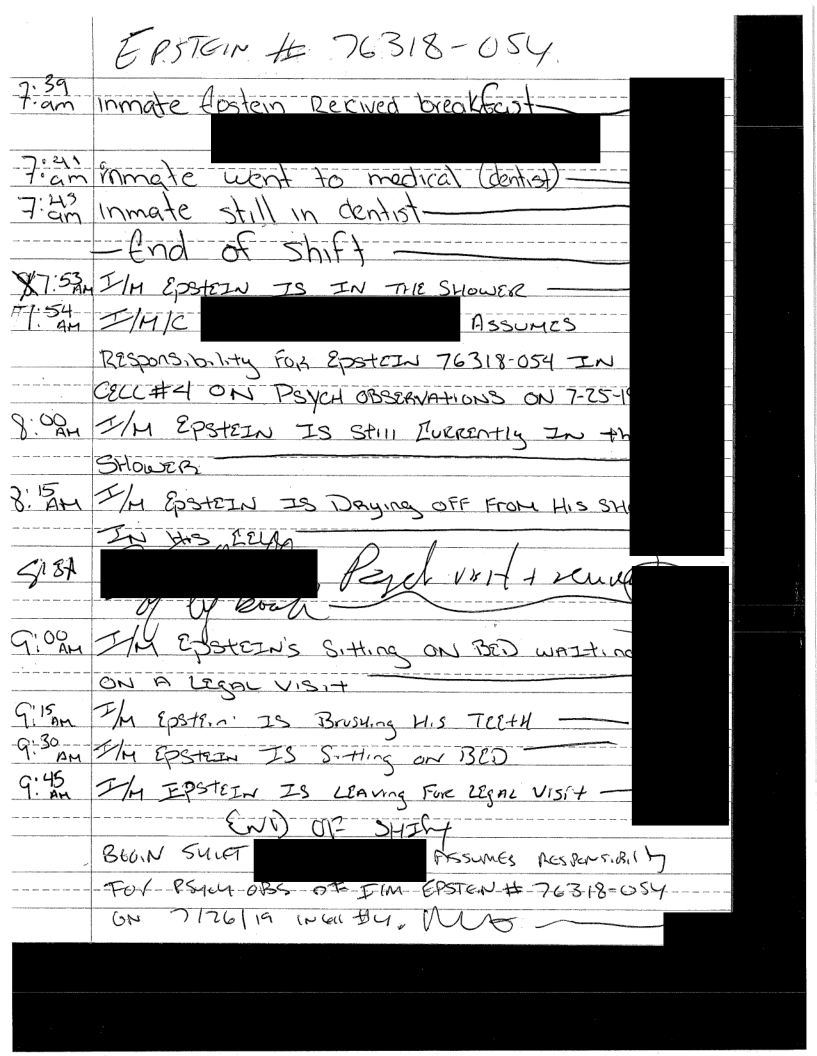 EPSTEIN # 76318-054
7:39 am inmate Epstein Recived breakfast
7:41 am inmate went to medical (dentist)
7:43 am inmate still in dentist
End of shift
7:53 AM I/M EPSTEIN IS IN THE SHOWER
7:54 AM I/M/C ASSUMES
RESponsibility FOR EPSTEIN 76318-054 IN
CELL #4 ON PSYCH OBSERVATIONS ON 7-25-19
8:00 AM I/M EPSTEIN IS Still CURRENTLY IN th
SHOWER
8:15 AM I/M EPSTEIN IS Drying OFF FROM His SH
IN His CELL
Psych visit +
9:00 AM I/M EPSTEIN'S Sitting ON BED WAITING
ON A LEGAL VISIT
9:15 AM I/M Epstein IS Brushing His TEETH
9:30 AM I/M EPSTEIN IS Sitting ON BED
9:45 AM I/M EPSTEIN IS LEAVING FOR LEGAL VISIT
END OF SHIFT
BEGIN SHIFT ASSUMES RESPONSIBILITY
FOR PSYCH OBS OF I/M EPSTEIN # 76318-054
ON 7/26/19 IN CELL #4.